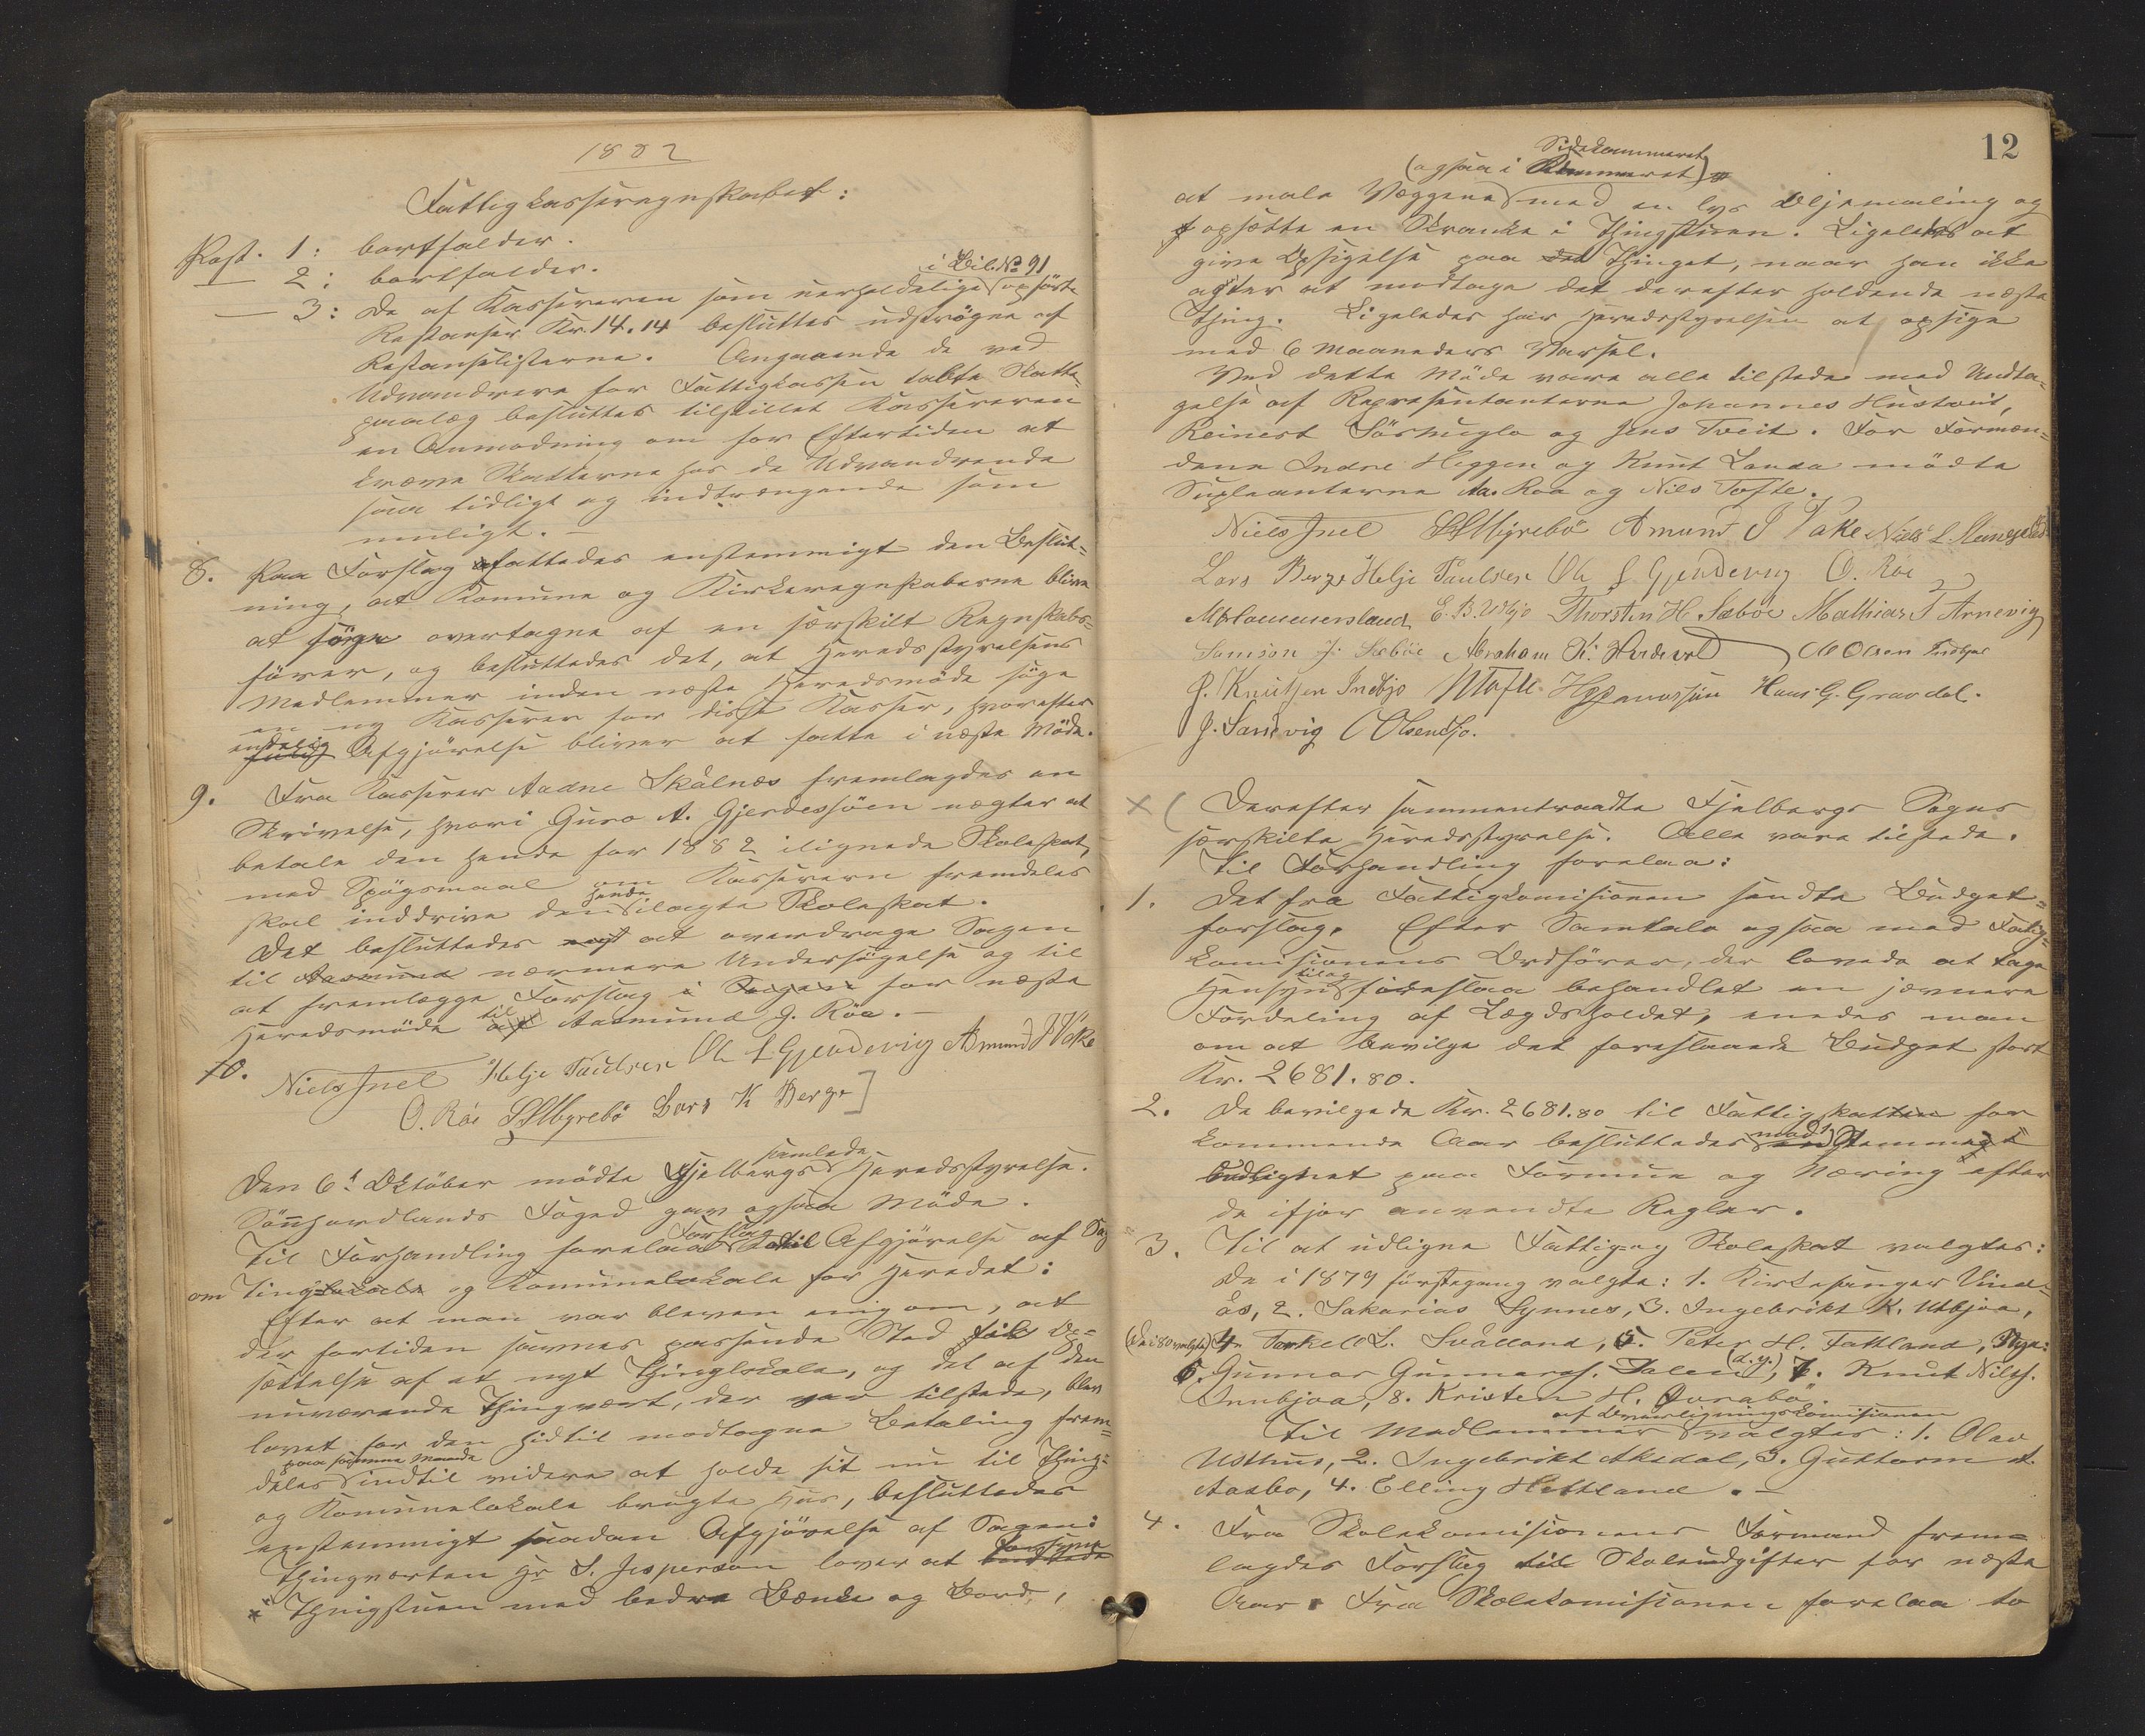 1882
Fattigkasseregnskabet:
Post. 1: bortfalder.
— 2: bortfalder.
i Bil. No 91
— 3: De af Kassereren som uerholdelige opførte
Restanser Kr. 14.14 besluttes udstrøgne af
Restanselisterne. Angaaende de ved
Udvandrere for Fattigkassen tabte Skatte-
paalæg besluttes tilstillet Kassereren
en Anmodning om for Eftertiden at
kræve Skatterne hos de Udvandrende
saa tidligt og indtrængende som
muligt. —
8. Paa Forslag fattedes enstemmigt den Beslut-
ning, at Komune og Kirkeregnskaberne blive
at søge overtagne af en særskilt Regnskabs-
fører, og besluttedes det, at Heredsstyrelsens
Medlemmer inden næste Heredsmøde søge
en ny Kasserer for disse Kasser, hvorefter
endelig Afgjørelse bliver at fatte i næste Møde.
9. Fra Kasserer Aadne Skålnes fremlagdes en
Skrivelse, hvori Guro A. Gjerdessjöen nægter at
betale den hende for 1882 ilignede Skoleskat,
med Spøgsmaal om Kassereren fremdeles
skal inddrive den hende ilagte Skoleskat.
Det besluttedes at overdrage Sagen
til nærmere Undersøgelse og til
at fremlægge Forslag i Sagen for næste
Heredsmøde til Aamund G. Röe. —
10.
Niels Juel Helje Paulsen Ole L Gjerdevig Amund J Våke
O. Röe SSMyrebö Lars K Berge
Den 6te Oktober mødte Fjelbergs samlede Heredsstyrelse.
Søndhordlands Foged gav ogsaa Møde.
Til Forhandling forelaa Forslag til Afgjørelse af Sag
om Tinglokale og Komunelokale for Heredet:
Efter at man var bleven enig om, at
der fortiden savnes passende Sted til Op-
sættelse af et nyt Thinglokale, og det af den
nuværende Thingvært, der var tilstede, blev
lovet for den hidtil modtagne Betaling frem-
paa samme Maade
deles indtil videre at holde sit nu til Thing-
og Komunelokale brugte Hus, besluttedes
enstemmigt saadan Afgjørelse af Sagen:
Thingværten Hr S. Jespersen lover at forsyne
Thingstuen med bedre Bænke og Bord,
12
Sidekammeret
(ogsaa i Kammeret)
at male Væggene med en lys Oljemaling og
opsætte en Skranke i Thingstuen. Ligeledes at
give Opsigelse paa det Thinget, naar han ikke
agter at modtage det derefter holdende næste
Thing. Ligeledes har Heredsstyrelsen at opsige
med 6 Maaneders Varsel.
Ved dette Møde vare alle tilstede med Undta-
gelse af Repræsentanterne Johannes Hustveit,
Reinert Sörhuglo og Jens Tveit. For Formæn-
dene Indre Heggen og Knut Landa mødte
Supleanterne Aa. Roa og Nils Tofte.
Niels Juel SSMyrebö Amund J Våke Niels L.
Lars Berge Helje Paulsen Ole L Gjerdevig O. Röe
E. B. Utbjo Thorsten H. Sæböe Mathias T Arnevig
Samson J. Sæböe Abraham K. Ole Olsen Indbjo
J. Knutsen Indbjo NTofte Hans G. Gravdal.
J. Sandvig
Derefter sammentraadte Fjelbergs Sogns
særskilte Heredsstyrelse. Alle vare tilstede.
Til Forhandling forelaa:
1. Det fra Fattigkomisionen sendte Budget-
forslag. Efter Samtale ogsaa med Fattig-
komisionens Ordfører, der lovede at tage
Hensyn til og foreslaa behandlet en jævnere
Fordeling af Lægdsholdet, enedes man
om at bevilge det foreslaaede Budget stort
Kr. 2681.80.
2. De bevilgede Kr. 2681.80 til Fattigskatten for
kommende Aar besluttedes med Stemmer
udlignet paa Formue og Næring efter
de ifjor anvendte Regler.
3. Til at udligne Fattig og Skoleskat valgtes:
De i 1879 førstegang valgte: 1. Kirkesanger Vind-
ås, 2. Sakarias Synnes, 3. Ingebrikt K. Utbjoa,
(De i 80 valgte) 4. Torkell L. Svålland, 5. Peter H. Fattland, Nye:
6. Gunnar Gunnars. Dalen (d. y.), 7. Knut Nils.
Innbjoa, 8. Kristen H.
af Overligningskomisionen
Til Medlemmer valgtes: 1. Olav
Usthus, 2. Ingebrikt Aksdal, 3. Guttorm A.
Aasbo, 4. Elling Hettland. —
4. Fra Skolekomisionens Formand frem-
lagdes Forslag til Skoleudgifter for næste
Aar. Fra Skolekomisionen forelaa to